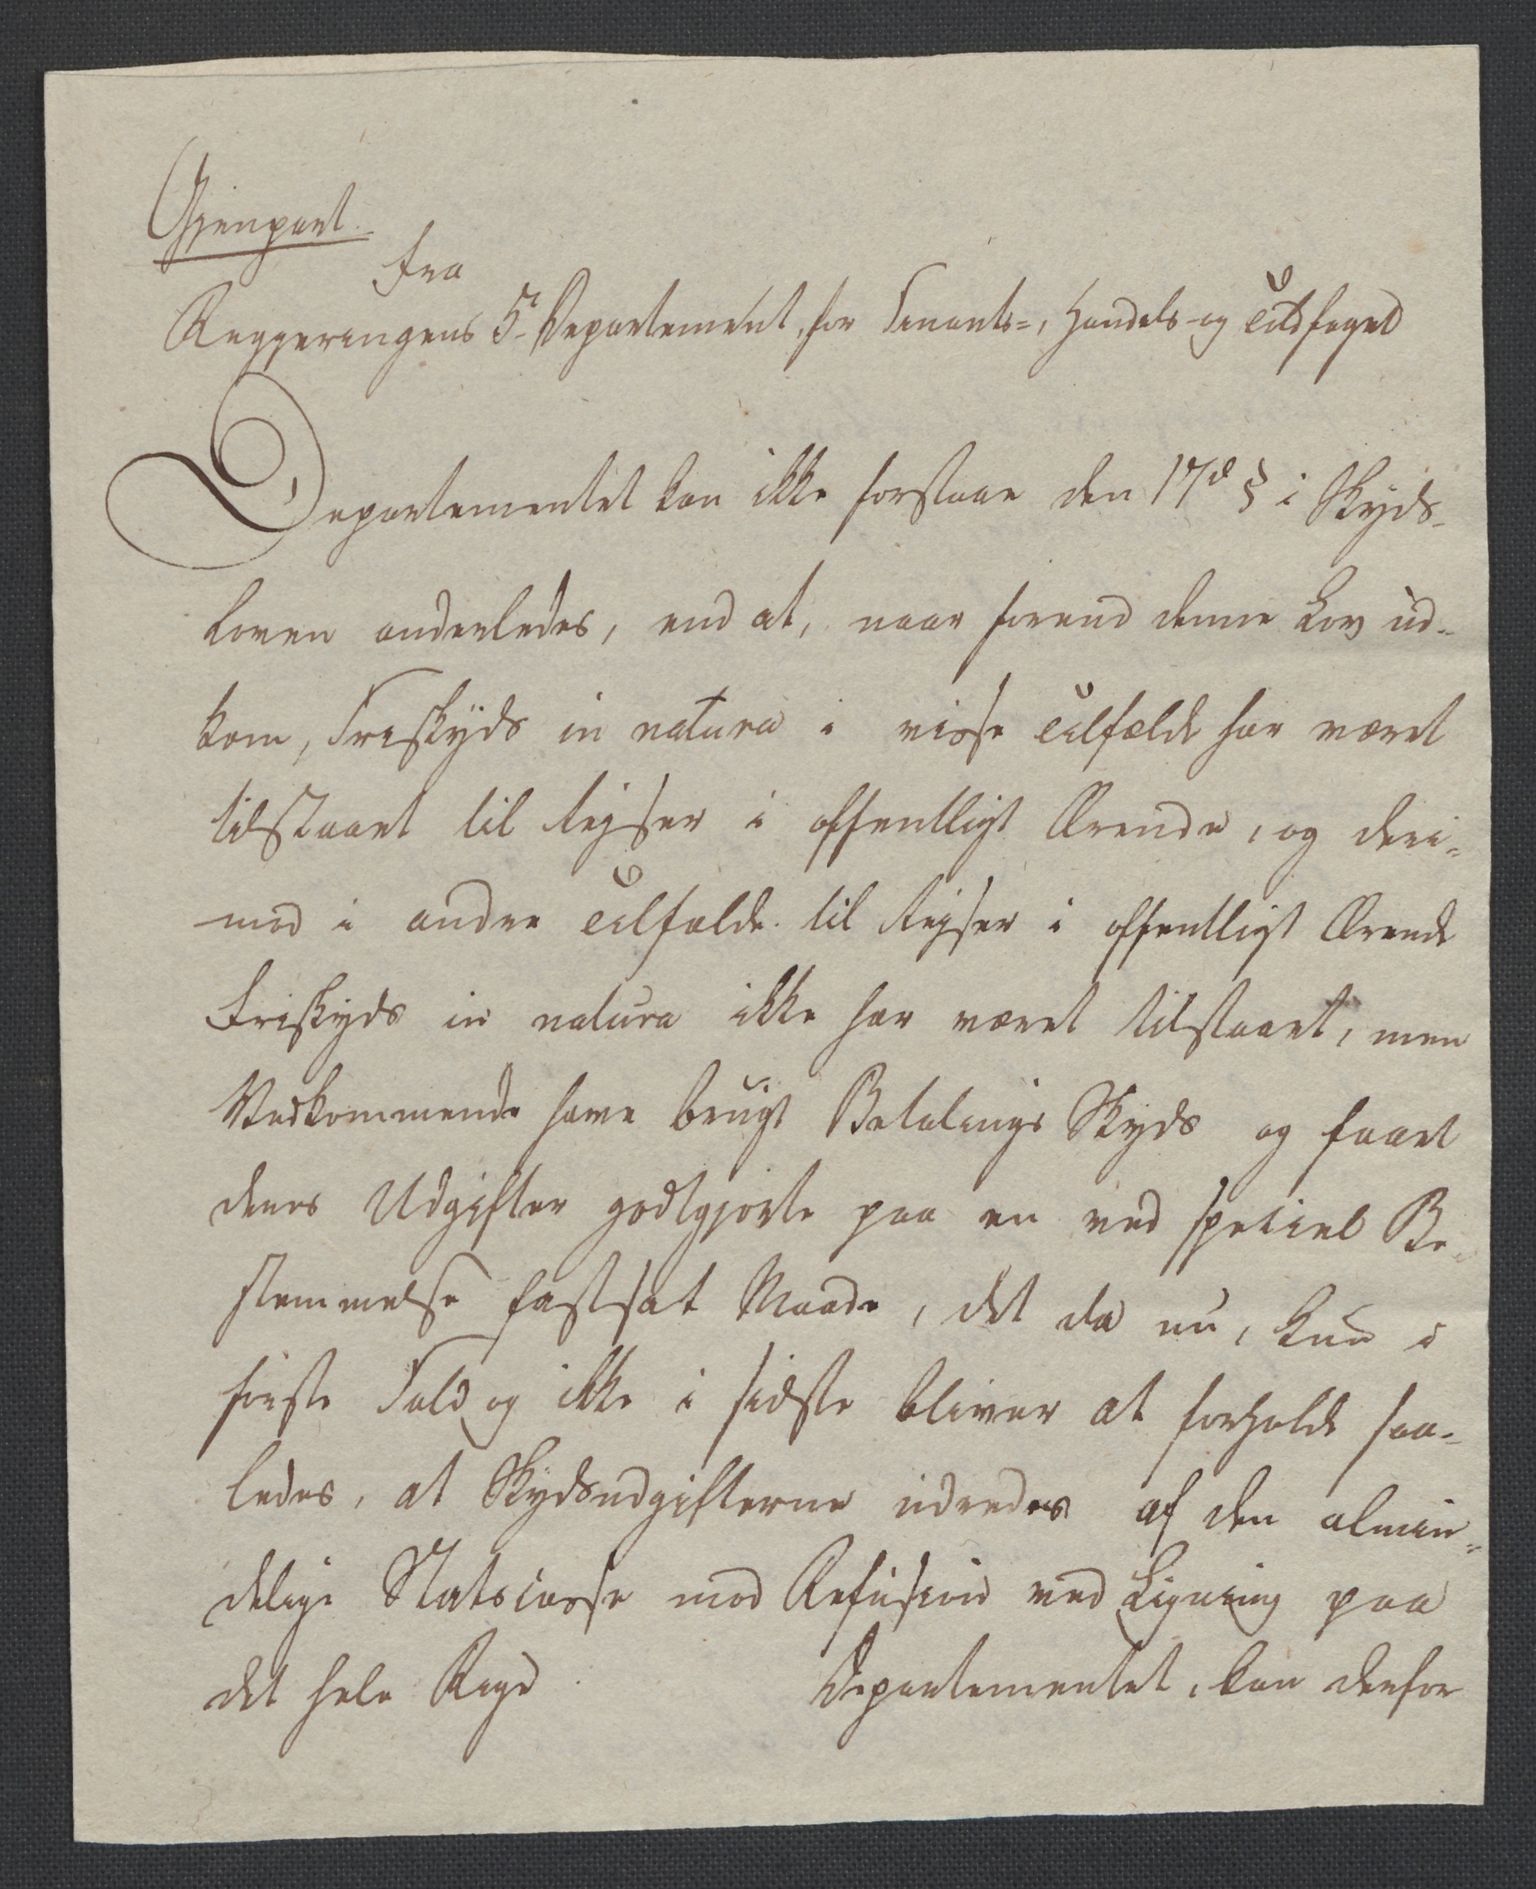 Gjenpart.
Fra
Reggeringens 5te Departement, for Finants-, Handels- og Toldfaget
Departementet kan ikke forstaae den 17de § i Skyds-
loven anderledes, end at, naar forend denne Lov ud-
kom, Friskyds in natura i visse Tilfælde har været
tilstaaet til Rejser i offentligt Ærende, og deri-
mod i andre Tilfælde til Rejser i offentligt Ærende
Friskyds in natura ikke har været tilstaaet, men
Vedkommende have brugt Betalings Skyds og faaet
deres Udgifter godtgjorte paa en ved speciel Be-
stemmelse fastsat Maade, det da nu, kun i
første Fald og ikke i sidste bliver at forholde saa-
ledes, at Skydsudgifterne udredes af den almin-
delige Statscasse mod Refusion ved Ligning paa
det hele Rige. Departementet, kan derfor